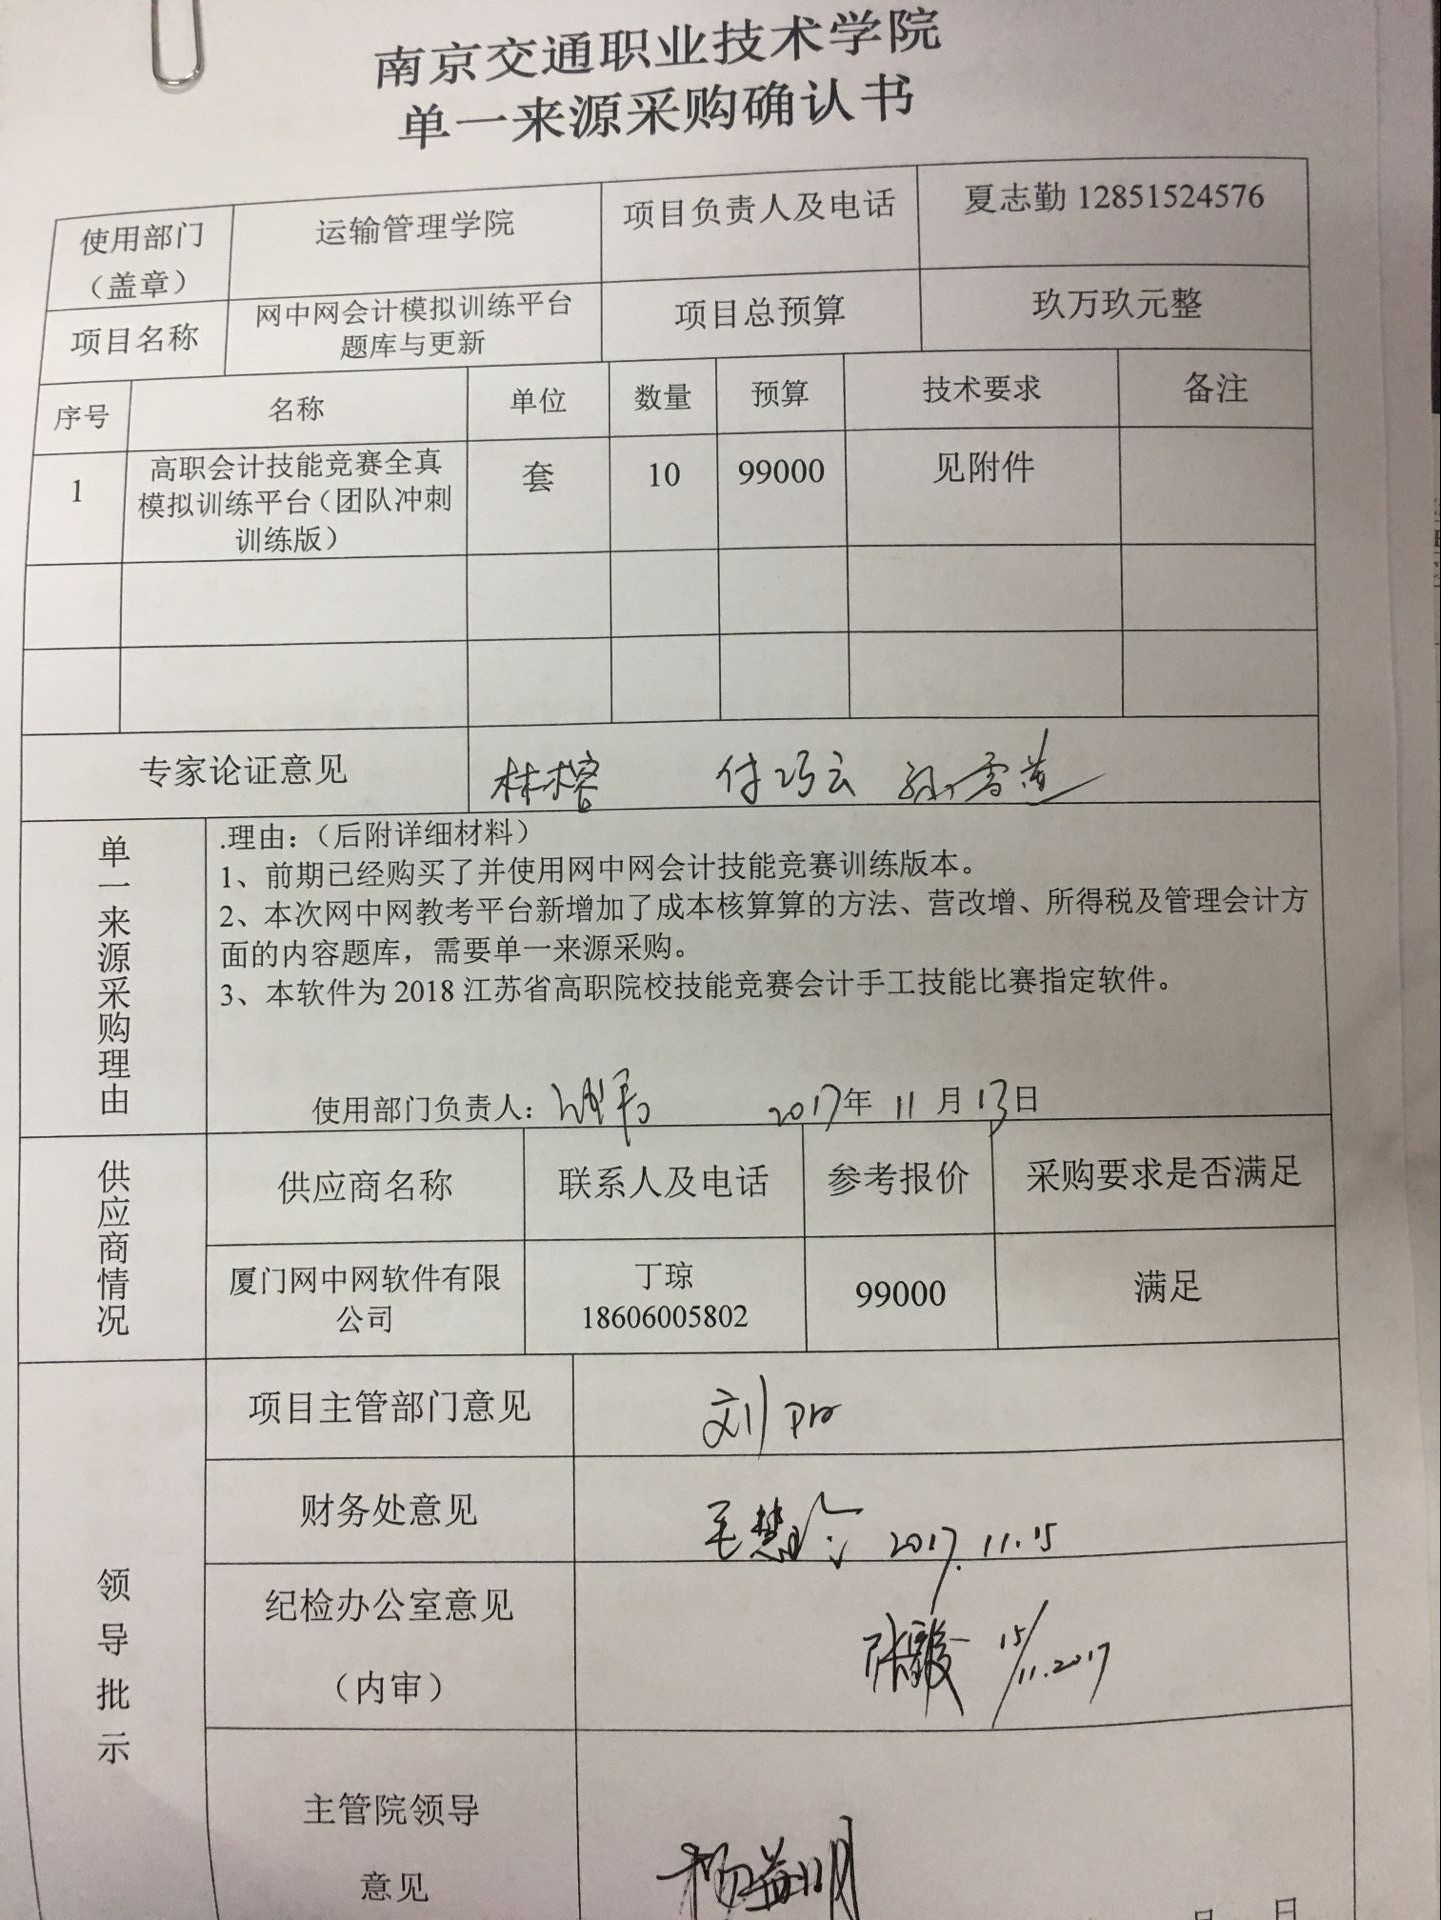 南京交通职业技术学院
单一来源采购确认书
使用部门
（盖章）
运输管理学院
项目负责人及电话
夏志勤 12851524576
项目名称
网中网会计模拟训练平台
题库与更新
项目总预算
玖万玖元整
序号
名称
单位
数量
预算
技术要求
备注
1
高职会计技能竞赛全真
模拟训练平台（团队冲刺
训练版）
套
10
99000
见附件
专家论证意见
林榕 付巧云
单一来源采购理由
.理由：（后附详细材料）
1、前期已经购买了并使用网中网会计技能竞赛训练版本。
2、本次网中网教考平台新增加了成本核算算的方法、营改增、所得税及管理会计方
面的内容题库，需要单一来源采购。
3、本软件为 2018 江苏省高职院校技能竞赛会计手工技能比赛指定软件。
使用部门负责人： 2017年 11 月 13日
供应商情况
供应商名称
联系人及电话
参考报价
采购要求是否满足
厦门网中网软件有限
公司
丁琼
18606005802
99000
满足
领导批示
项目主管部门意见
刘阳
财务处意见
毛慧玲 2017.11.15
纪检办公室意见
（内审）
15/11.2017
主管院领导
意见
杨益明
月 日